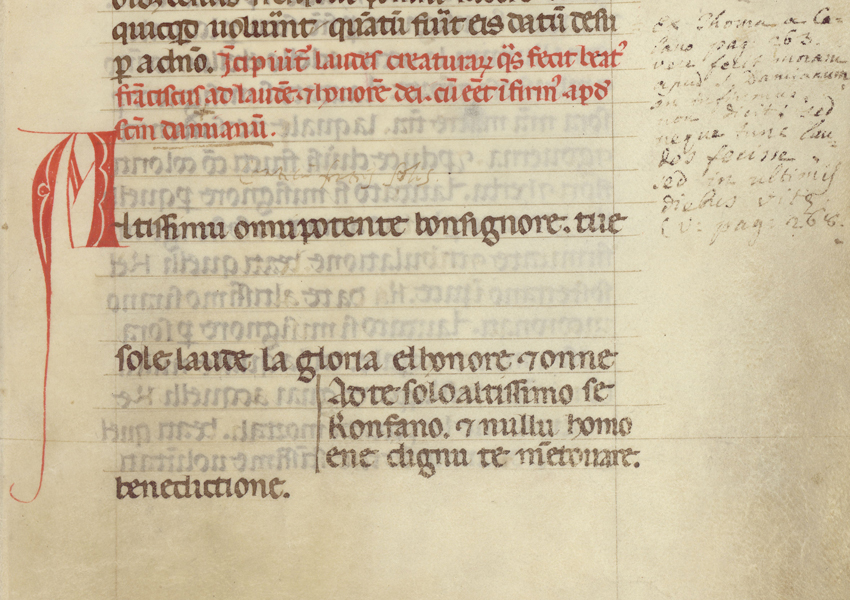 quicqd uoluīnt quātū fiūt eis datū desu
ꝑ a dn̄o. Īcipiūt laudes creaturaꝝ qͣs fecit beatꝰ
frāciscus ad laudē ⁊ hōnorē dei. cū eēt ī firmꝰ apd
scm̄ damianū.
Altissimu omnipotente bonsignore. tue
sole laude la gloria elhonore ⁊ onne
Ad te solo altissimo se
Konfano. ⁊ nullu homo
ene dignu te mētouare.
benedictione.
de Thoma a Ce-
lano pag. 263.
apud S. Damianum
infirmus.
non dicit, sed
neque tunc lau-
des fecisse
sed in ultimis
diebus vitæ
(v. pag. 268.